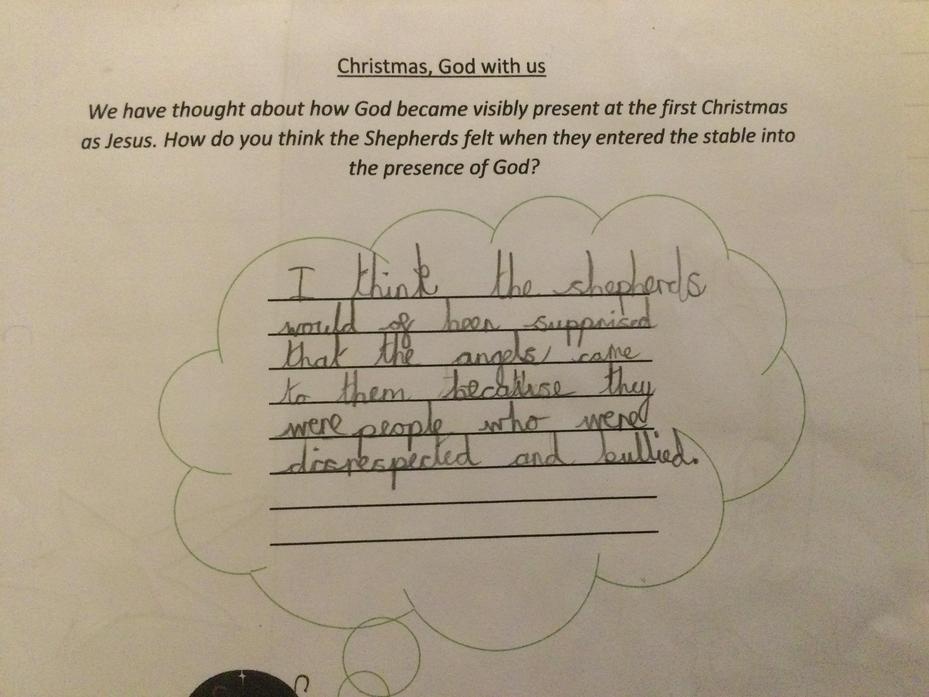 Christmas, God with us
We have thought about how God became visibly present at the first Christmas
as Jesus. How do you think the Shepherds felt when they entered the stable into
the presence of God?
I think the shepherds
would of been supprised
that the angels, came
to them because they
were people who were
disrespected and bullied.